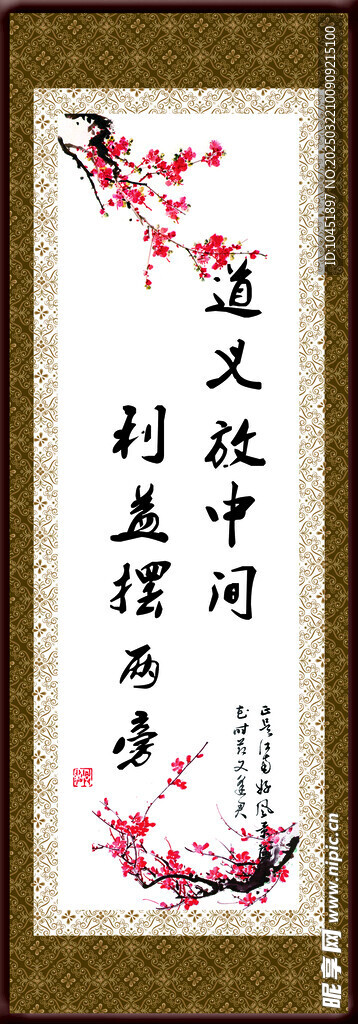 道义放中间
利益摆两旁
正是江南好风景
花时节又逢君
ID:10451897 NO:20250322100909215100
昵享网 www.nipic.cn